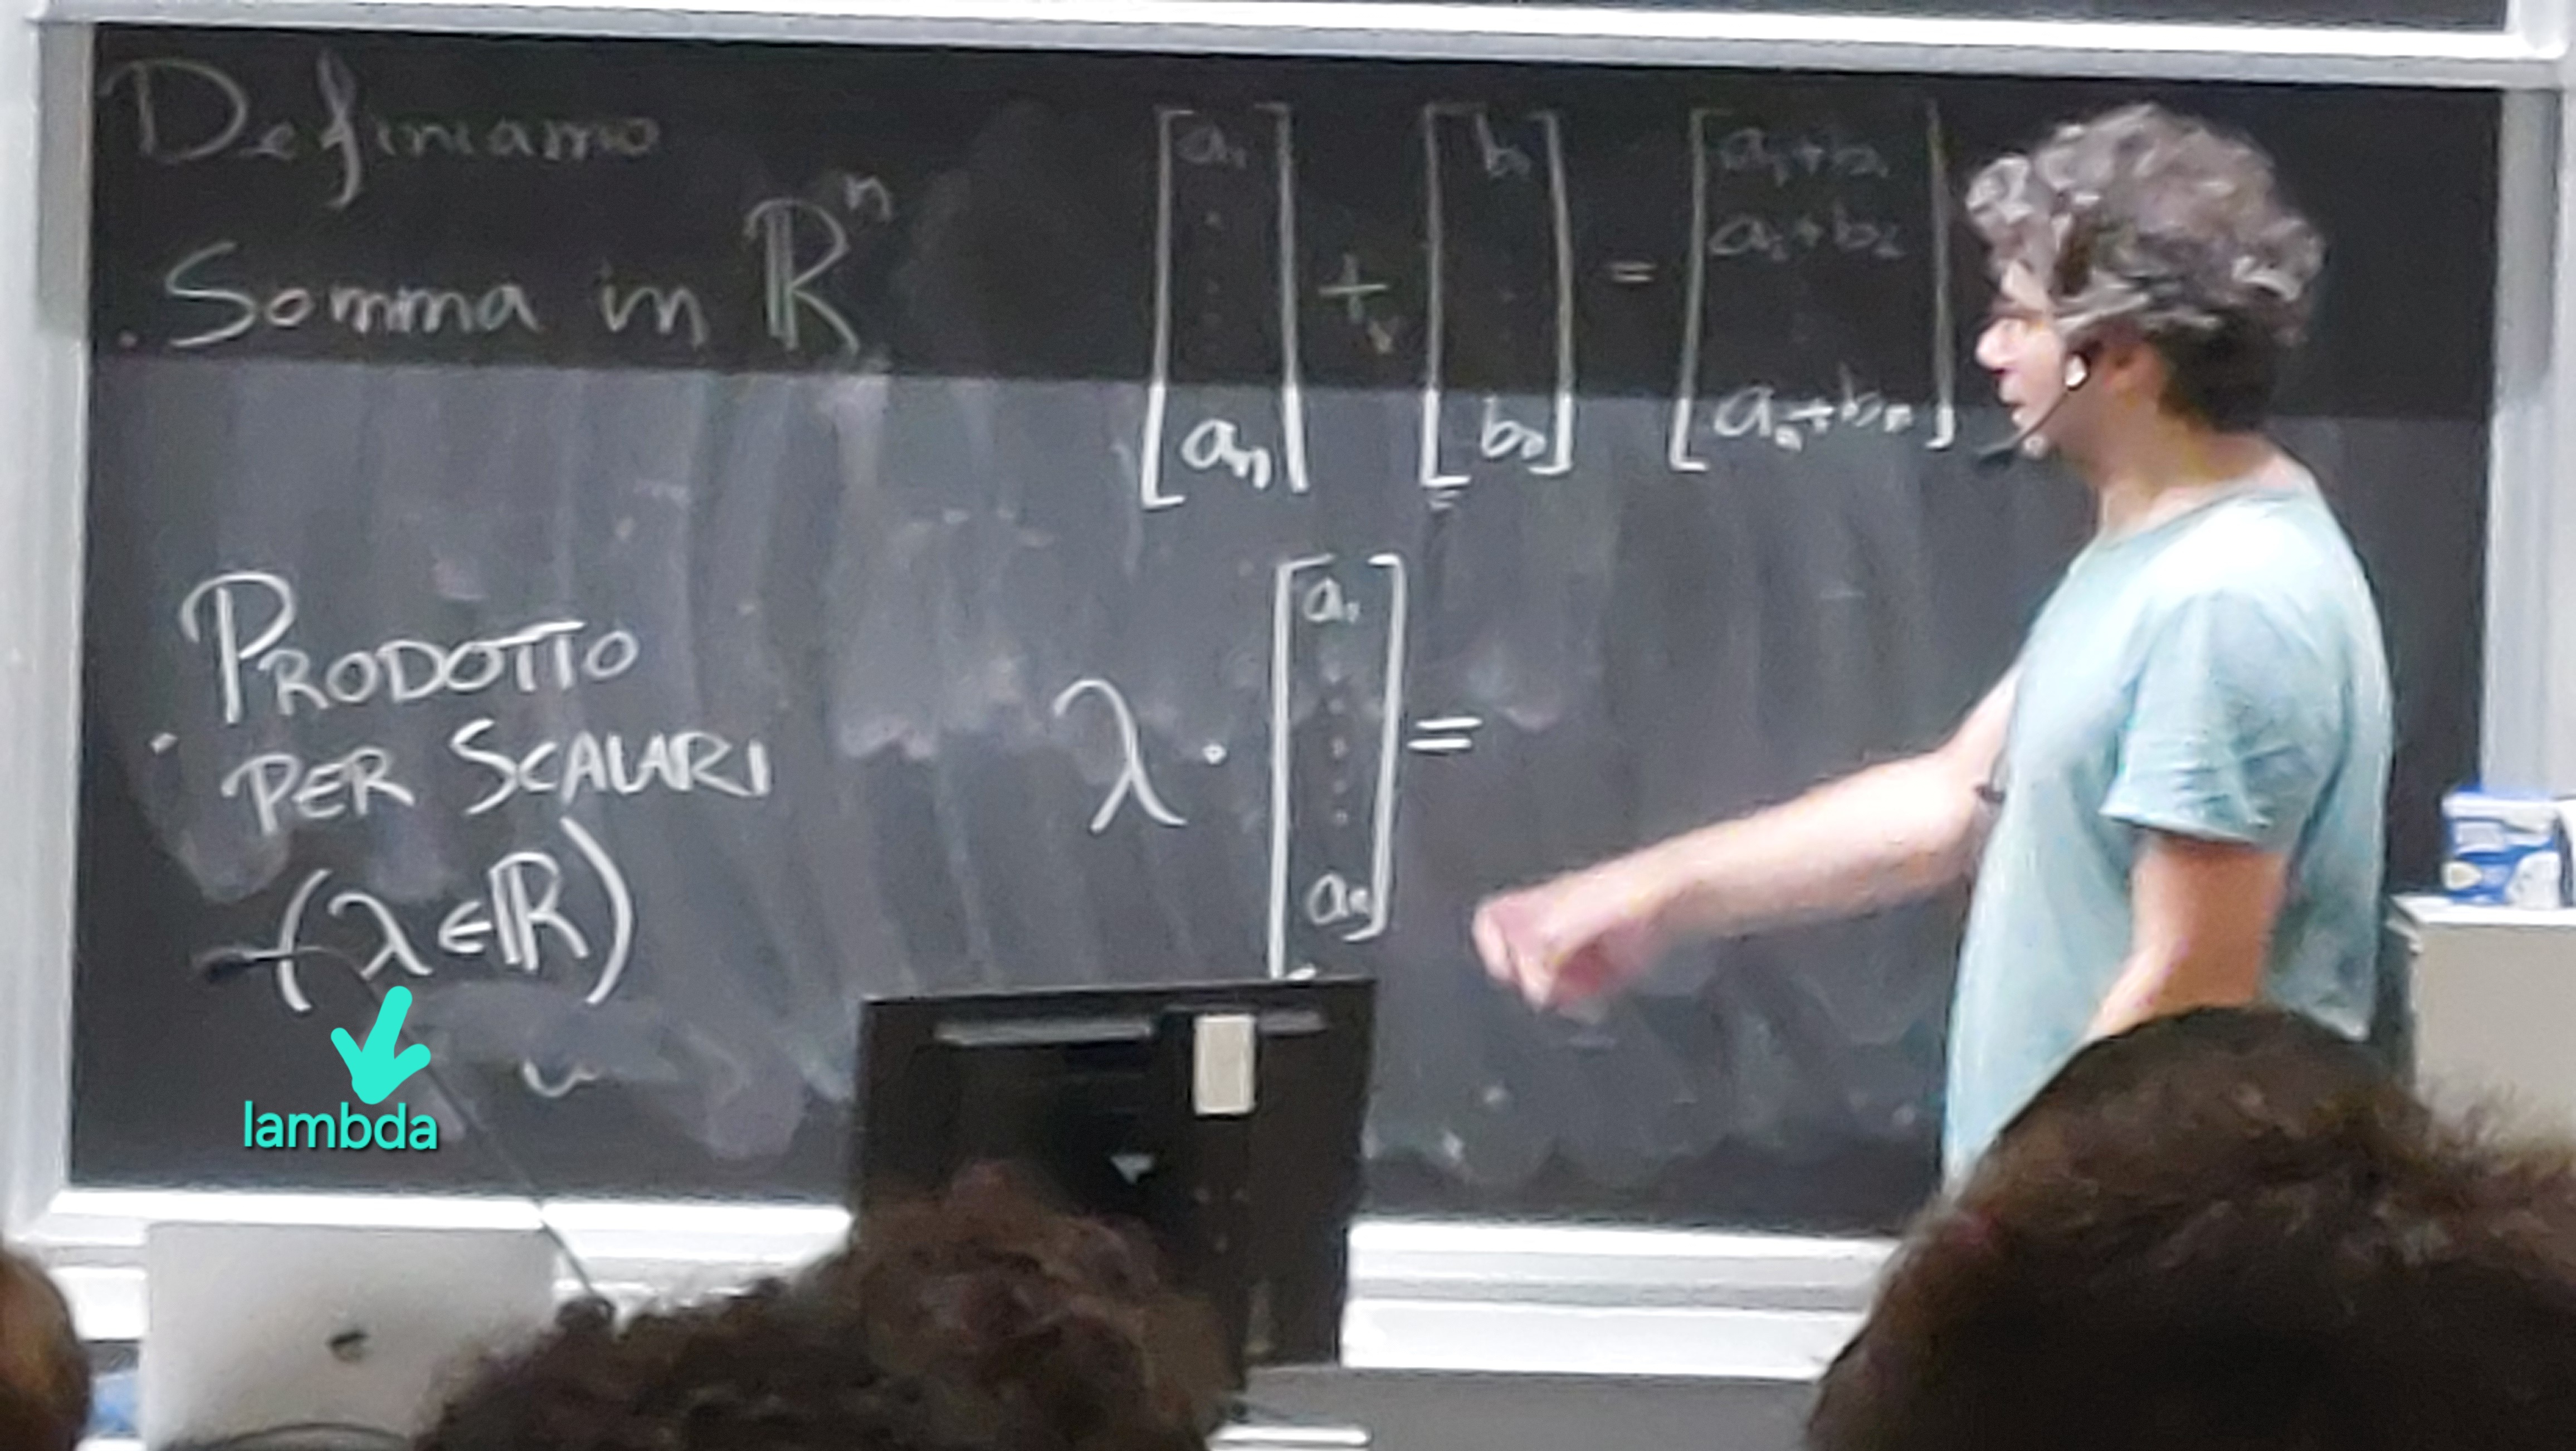 Definiamo
. Somma in ℝⁿ
[a₁ ⋮ aₙ] +ᵥ [b₁ ⋮ bₙ] = [a₁+b₁ a₂+b₂ ⋮ aₙ+bₙ]
. PRODOTTO
PER SCALARI
(λ∈ℝ)
λ · [a₁ ⋮ aₙ] =
lambda